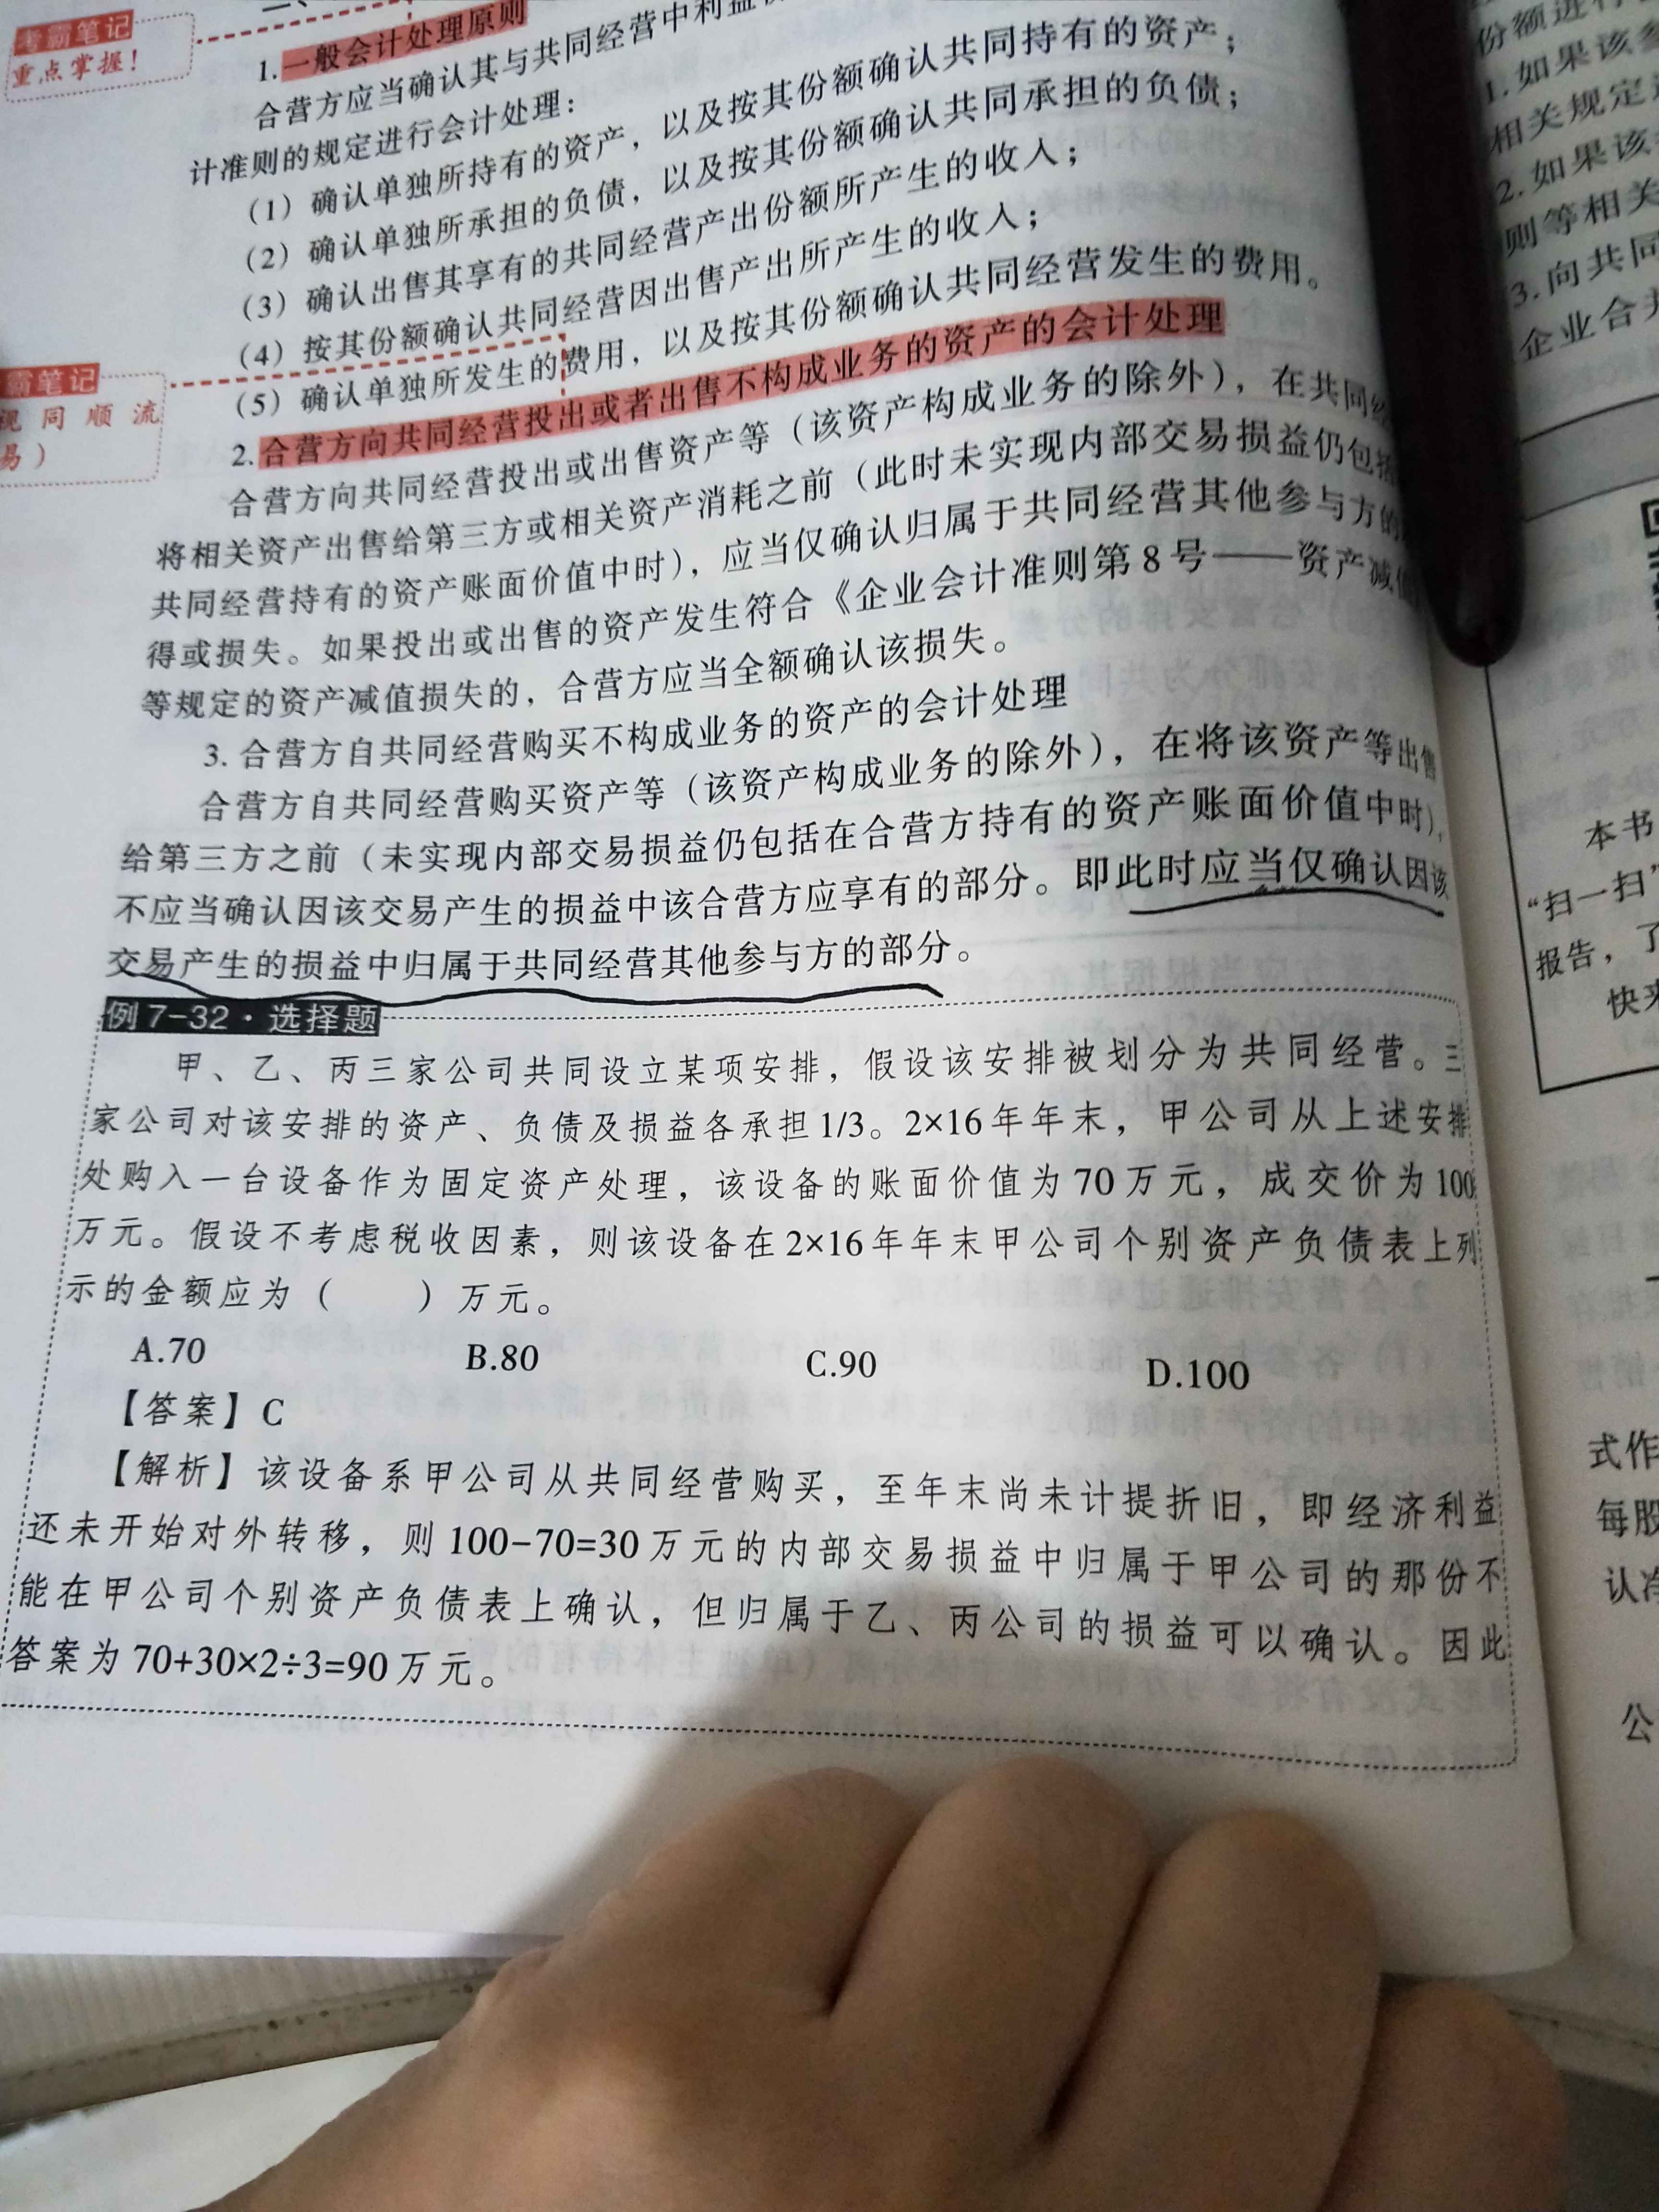 考霸笔记
重点掌握！
1.一般会计处理原则
合营方应当确认其与共同经营中利益
计准则的规定进行会计处理：
（1）确认单独所持有的资产，以及按其份额确认共同持有的资产；
（2）确认单独所承担的负债，以及按其份额确认共同承担的负债；
（3）确认出售其享有的共同经营产出份额所产生的收入；
（4）按其份额确认共同经营因出售产出所产生的收入；
（5）确认单独所发生的费用，以及按其份额确认共同经营发生的费用。
霸笔记
视同顺流
易）
2.合营方向共同经营投出或者出售不构成业务的资产的会计处理
合营方向共同经营投出或出售资产等（该资产构成业务的除外），在共同
将相关资产出售给第三方或相关资产消耗之前（此时未实现内部交易损益仍包括
共同经营持有的资产账面价值中时），应当仅确认归属于共同经营其他参与方的
得或损失。如果投出或出售的资产发生符合《企业会计准则第8号——资产减值
等规定的资产减值损失的，合营方应当全额确认该损失。
3.合营方自共同经营购买不构成业务的资产的会计处理
合营方自共同经营购买资产等（该资产构成业务的除外），在将该资产等出售
给第三方之前（未实现内部交易损益仍包括在合营方持有的资产账面价值中时），
不应当确认因该交易产生的损益中该合营方应享有的部分。即此时应当仅确认因该
交易产生的损益中归属于共同经营其他参与方的部分。
例7-32·选择题
甲、乙、丙三家公司共同设立某项安排，假设该安排被划分为共同经营。三
家公司对该安排的资产、负债及损益各承担1/3。2×16年年末，甲公司从上述安排
处购入一台设备作为固定资产处理，该设备的账面价值为70万元，成交价为100
万元。假设不考虑税收因素，则该设备在2×16年年末甲公司个别资产负债表上列
示的金额应为（ ）万元。
A.70 B.80 C.90 D.100
【答案】C
【解析】该设备系甲公司从共同经营购买，至年末尚未计提折旧，即经济利益
还未开始对外转移，则100-70=30万元的内部交易损益中归属于甲公司的那份不
能在甲公司个别资产负债表上确认，但归属于乙、丙公司的损益可以确认。因此
答案为70+30×2÷3=90万元。
份额进行
1.如果该
相关规定
2.如果该
则等相关
3.向共同
企业合并
本书
“扫一扫”
报告，了
快来
式作
每股
认净
公